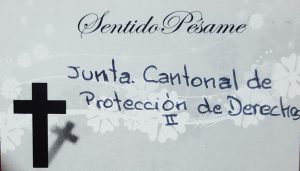 Sentido Pésame
Junta Cantonal de
Protección de Derechos
II